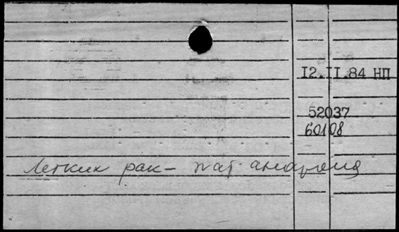 12.II.84 НП
52037
60108
Легких рак – пат. анатомия